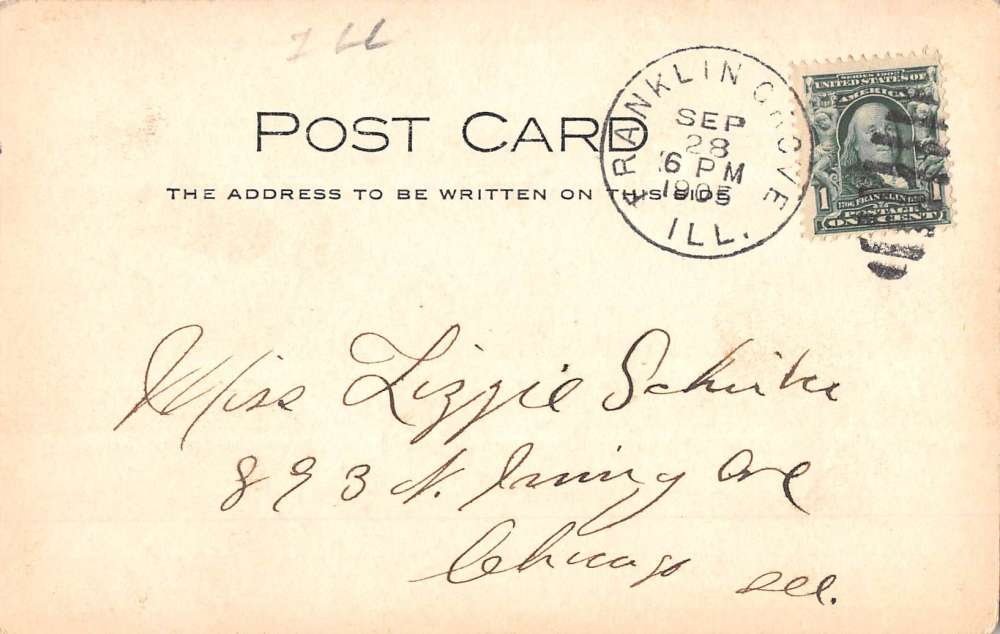 FRANKLIN GROVE
SEP
28
6 PM
1905
ILL.
SERIES 1902
UNITED STATES OF
AMERICA
1706 FRANKLIN 1790
1 1
POSTAGE
ONE CENT
POST CARD
THE ADDRESS TO BE WRITTEN ON THIS SIDE
Miss Lizzie
893 N. Irving Ave
Chicago Ill.